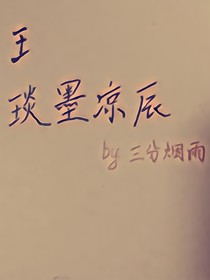 王
琰墨凉辰
by 三分烟雨